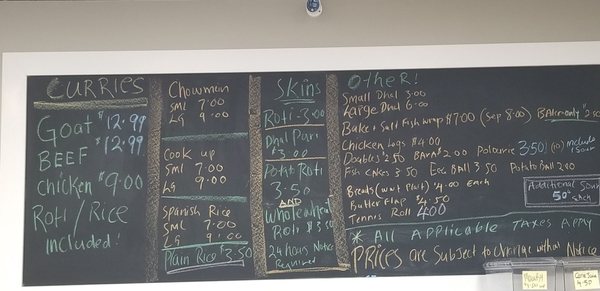 CURRIES
Goat $12.99
BEEF $12.99
chicken $9.00
Roti / Rice
included!
Chowman
SML 7.00
LG 9.00
Cook up
SML 7.00
LG 9.00
Spanish Rice
SML 7.00
LG 9.00
Plain Rice $3.50
Skins
Roti-3.00
Dhal Puri
$3.00
Potato Roti
3.50
AND
Wholewheat
Roti $3.50
24 hours Notice
Required
OtHER!
Small Dhal 3.00
Large Dhal 6.00
Bake + Salt Fish wrap $7.00 (Sep 8.00) BAke-only $2.50
Chicken Legs $4.00
Doubles $2.50 Bara 2.00 Polourie 3.50! (10) includes 1 sour
Fish Cakes 3.50 Egg Ball 3.50 Potato Ball 2.00
Breads (wwt Plait) $4.00 Each
Butter Flap $4.50
Tennis Roll 4.00
Additional Sour
50¢ each
* All Applicable Taxes Apply
PRices are Subject to Change without Notice